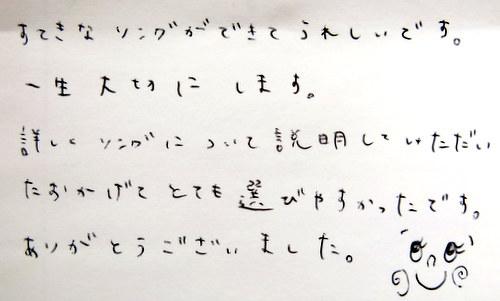 すてきなリングができてうれしいです。
一生大切にします。
詳しくリングについて説明していただい
たおかげでとても選びやすかったです。
ありがとうございました。